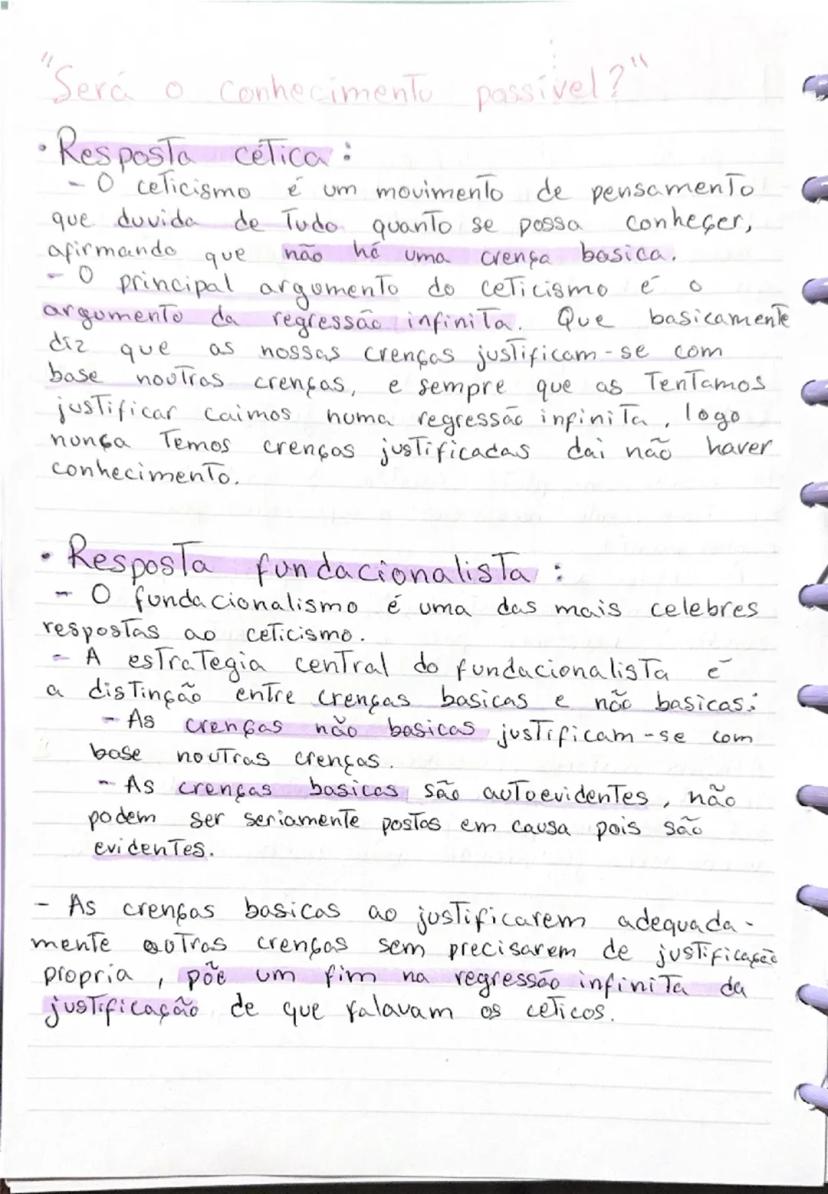 "Será o conhecimento possível?"
• Resposta cética:
- O ceticismo é um movimento de pensamento
que duvida de tudo quanto se possa conheçer,
afirmando que não há uma crença basica.
- O principal argumento do ceticismo é o
argumento da regressão infinita. Que basicamente
diz que as nossas crenças justificam-se com
base noutras crenças, e sempre que as tentamos
justificar caimos numa regressão infinita, logo
nunca temos crenças justificadas dai não haver
conhecimento.
• Resposta fundacionalista:
- O fundacionalismo é uma das mais celebres
respostas ao ceticismo.
- A estrategia central do fundacionalista é
a distinção entre crenças basicas e não basicas:
- As crenças não basicas justificam-se com
base noutras crenças.
- As crenças basicas são autoevidentes, não
podem ser seriamente postas em causa pois são
evidentes.
- As crenças basicas ao justificarem adequada-
mente outras crenças sem precisarem de justificação
propria, põe um fim na regressão infinita da
justificação de que falavam os ceticos.